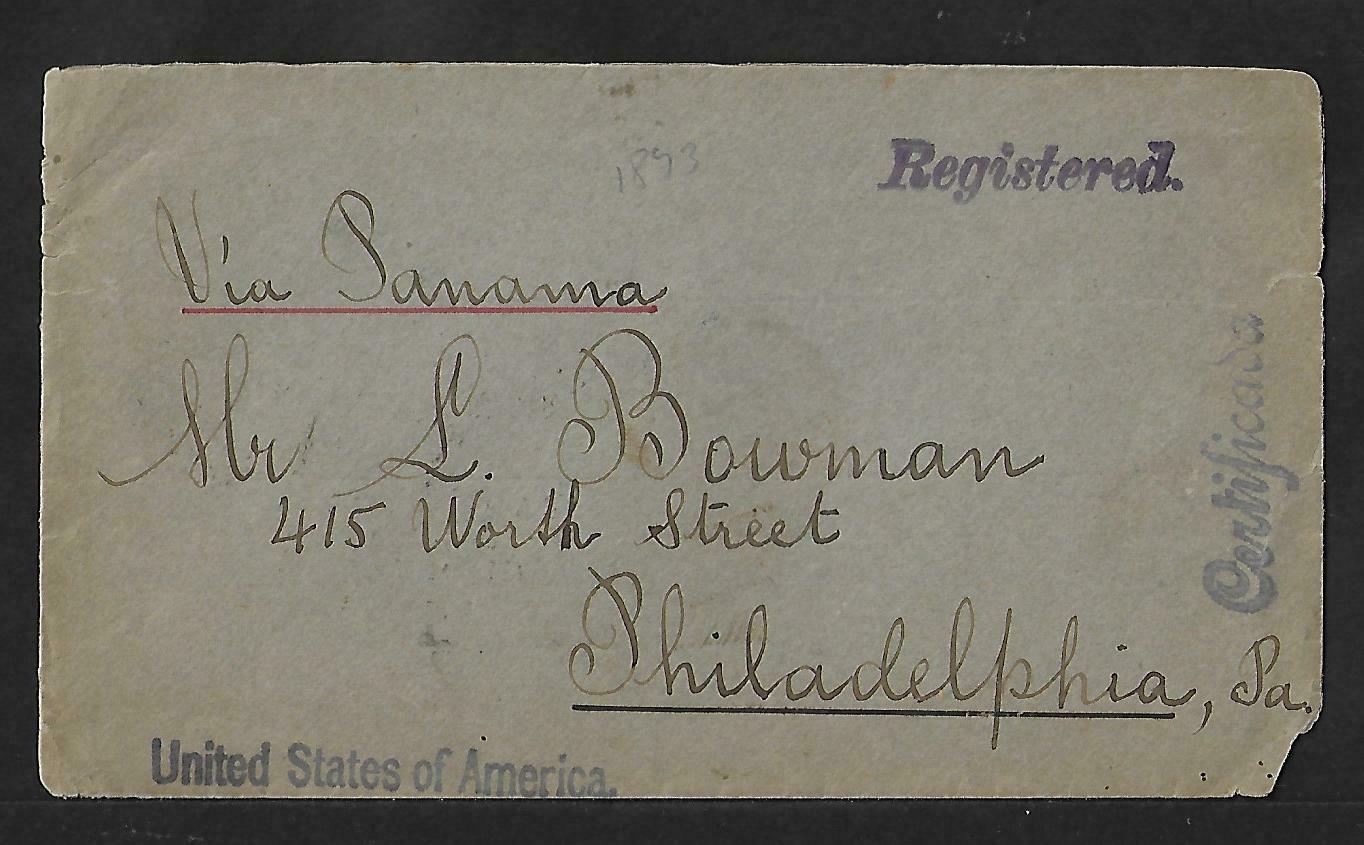 1893
Registered.
Via Panama
Mr L. Bowman
415 Worth Street
Philadelphia, Pa.
Certificada
United States of America.